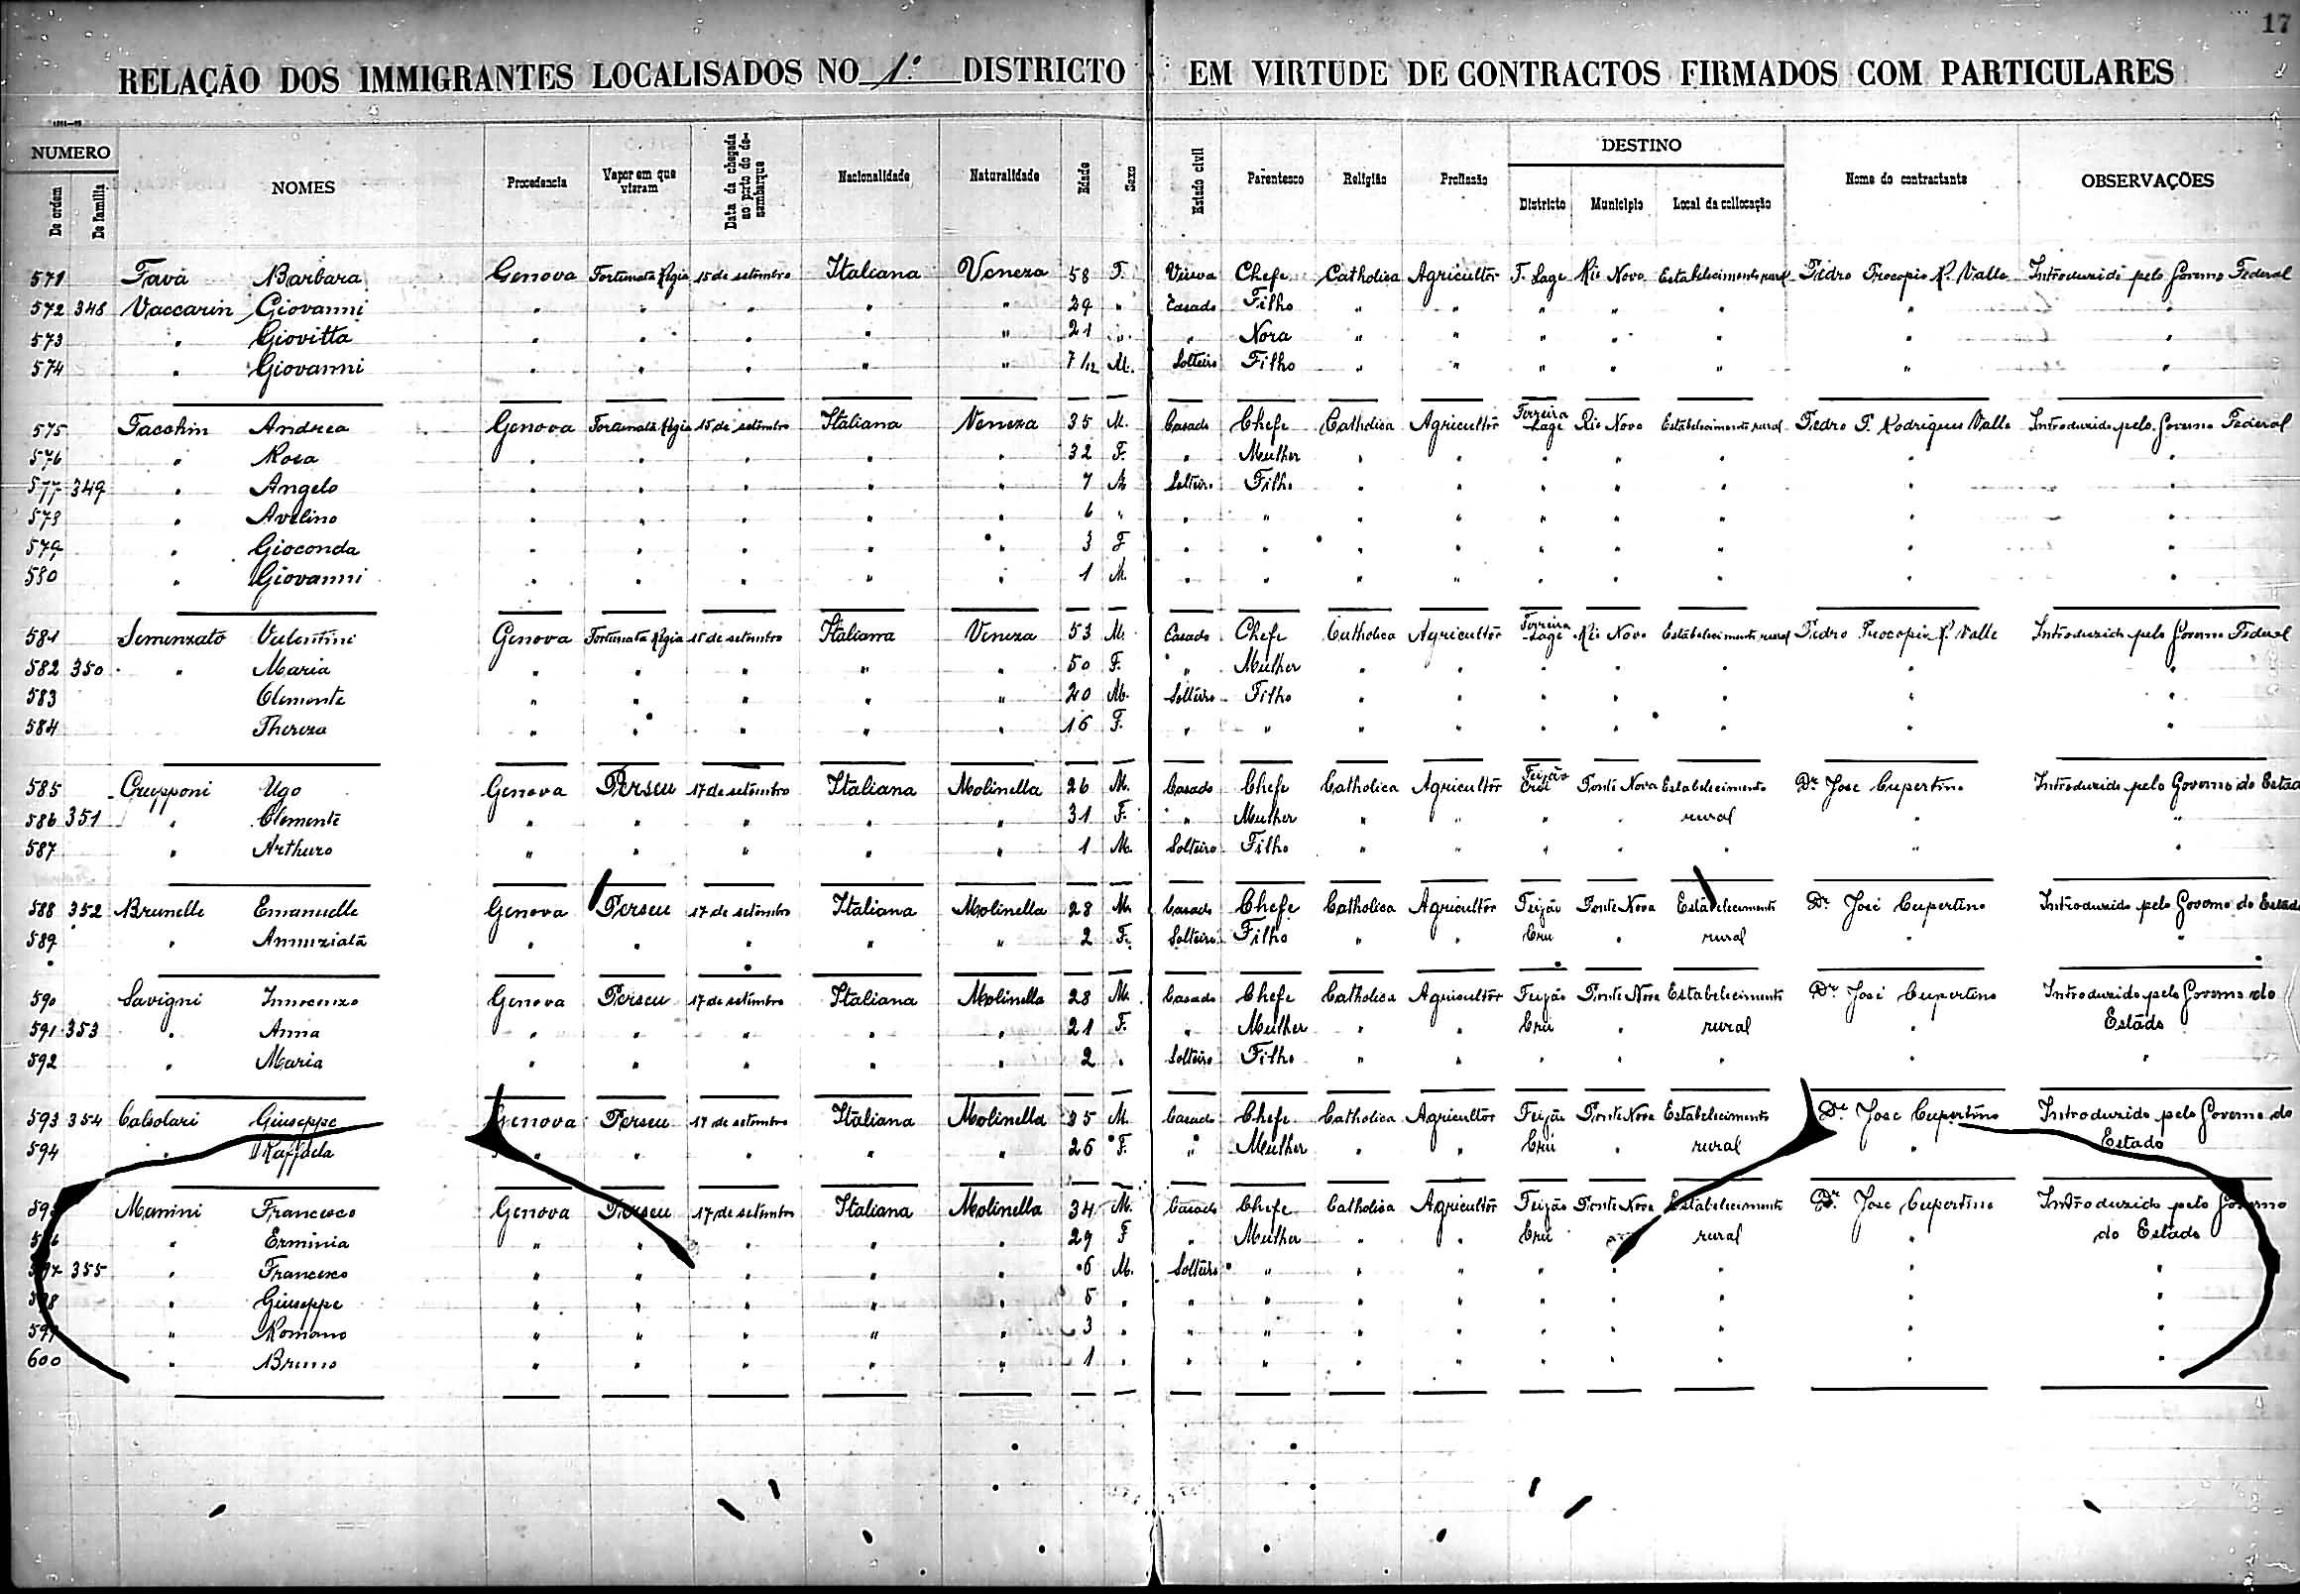 17
RELAÇÃO DOS IMMIGRANTES LOCALISADOS NO 1º DISTRICTO EM VIRTUDE DE CONTRACTOS FIRMADOS COM PARTICULARES
NUMERO
De ordem
De familia
NOMES
Procedencia
Vapor em que vieram
Data da chegada ao porto do desembarque
Nacionalidade
Naturalidade
Edade
Sexo
Estado civil
Parentesco
Religião
Profissão
DESTINO
Districto
Municipio
Local da collocação
Nome do contractante
OBSERVAÇÕES
571 Favà Barbara Genova Fortunata Régia 15 de setembro Italiana Veneza 58 F. Viuva Chefe Catholica Agricultôr F. Lage Rio Novo Estabelecimento rural Pedro Procopio R. Valle Introduzido pelo Governo Federal
572 348 Vaccarin Giovanni " " " " " 29 " Casado Filho " " " " " " "
573 " Giovitta " " " " " 21 " " Nora " " " " " " "
574 " Giovanni " " " " " 7/12 M. Solteiro Filho " " " " " " "
575 Facchin Andrea Genova Fortunata Régia 15 de setembro Italiana Veneza 35 M. Casado Chefe Catholica Agricultôr Ferreira Lage Rio Novo Estabelecimento rural Pedro P. Rodrigues Valle Introduzido pelo Governo Federal
576 " Rosa " " " " " 32 F. " Mulher " " " " " " "
577 349 " Angelo " " " " " 7 M Solteiro Filho " " " " " " "
578 " Avelino " " " " " 6 " " " " " " " " " "
579 " Gioconda " " " " " 3 F " " " " " " " " "
580 " Giovanni " " " " " 1 M. " " " " " " " " "
581 Semenzato Valentini Genova Fortunata Régia 15 de setembro Italiana Veneza 53 M. Casado Chefe Catholica Agricultôr Ferreira Lage Rio Novo Estabelecimento rural Pedro Procopio R. Valle Introduzido pelo Governo Federal
582 350 " Maria " " " " " 50 F. " Mulher " " " " " " "
583 Clemente " " " " " 20 M. Solteiro Filho " " " " " " "
584 Thereza " " " " " 16 F. " " " " " " " " "
585 Ugo Genova Perseu 17 de setembro Italiana Molinella 26 M. Casado Chefe Catholica Agricultôr Feijão Crú Ponte Nova Estabelecimento Dr. José Cupertino Introduzido pelo Governo do Estado
586 351 " Clemente " " " " " 31 F. " Mulher " " " " rural " "
587 " Arthuro " " " " " 1 M. Solteiro Filho " " " " " " "
588 352 Brunelle Emanuelle Genova Perseu 17 de setembro Italiana Molinella 28 M. Casado Chefe Catholica Agricultôr Feijão Ponte Nova Estabelecimento Dr. José Cupertino Introduzido pelo Governo do Estado
589 " Annunziatà " " " " " 2 F. Solteiro Filho " " Crú " rural " "
590 Savigni Innocenzo Genova Perseu 17 de setembro Italiana Molinella 28 M. Casado Chefe Catholica Agricultôr Feijão Ponte Nova Estabelecimento Dr. José Cupertino Introduzido pelo Governo do
591 353 " Anna " " " " " 21 F. " Mulher " " Crú " rural " Estado
592 " Maria " " " " " 2 " Solteiro Filho " " " " " " "
593 354 Calsolari Giuseppe Genova Perseu 17 de setembro Italiana Molinella 35 M. Casado Chefe Catholica Agricultôr Feijão Ponte Nova Estabelecimento Dr. José Cupertino Introduzido pelo Governo do
594 " Raffaela " " " " " 26 F. " Mulher " " Crú " rural " Estado
595 Manini Francesco Genova Perseu 17 de setembro Italiana Molinella 34 M. Casado Chefe Catholica Agricultôr Feijão Ponte Nova Estabelecimento Dr. José Cupertino Introduzido pelo Governo
596 " Erminia " " " " " 29 F " Mulher " " Crú " rural " do Estado
597 355 " Francesco " " " " " 6 M. Solteiro " " " " " " " "
598 " Giuseppe " " " " " 5 " " " " " " " " " "
599 " Romano " " " " " 3 " " " " " " " " " "
600 " Bruno " " " " " 1 " " " " " " " " " "